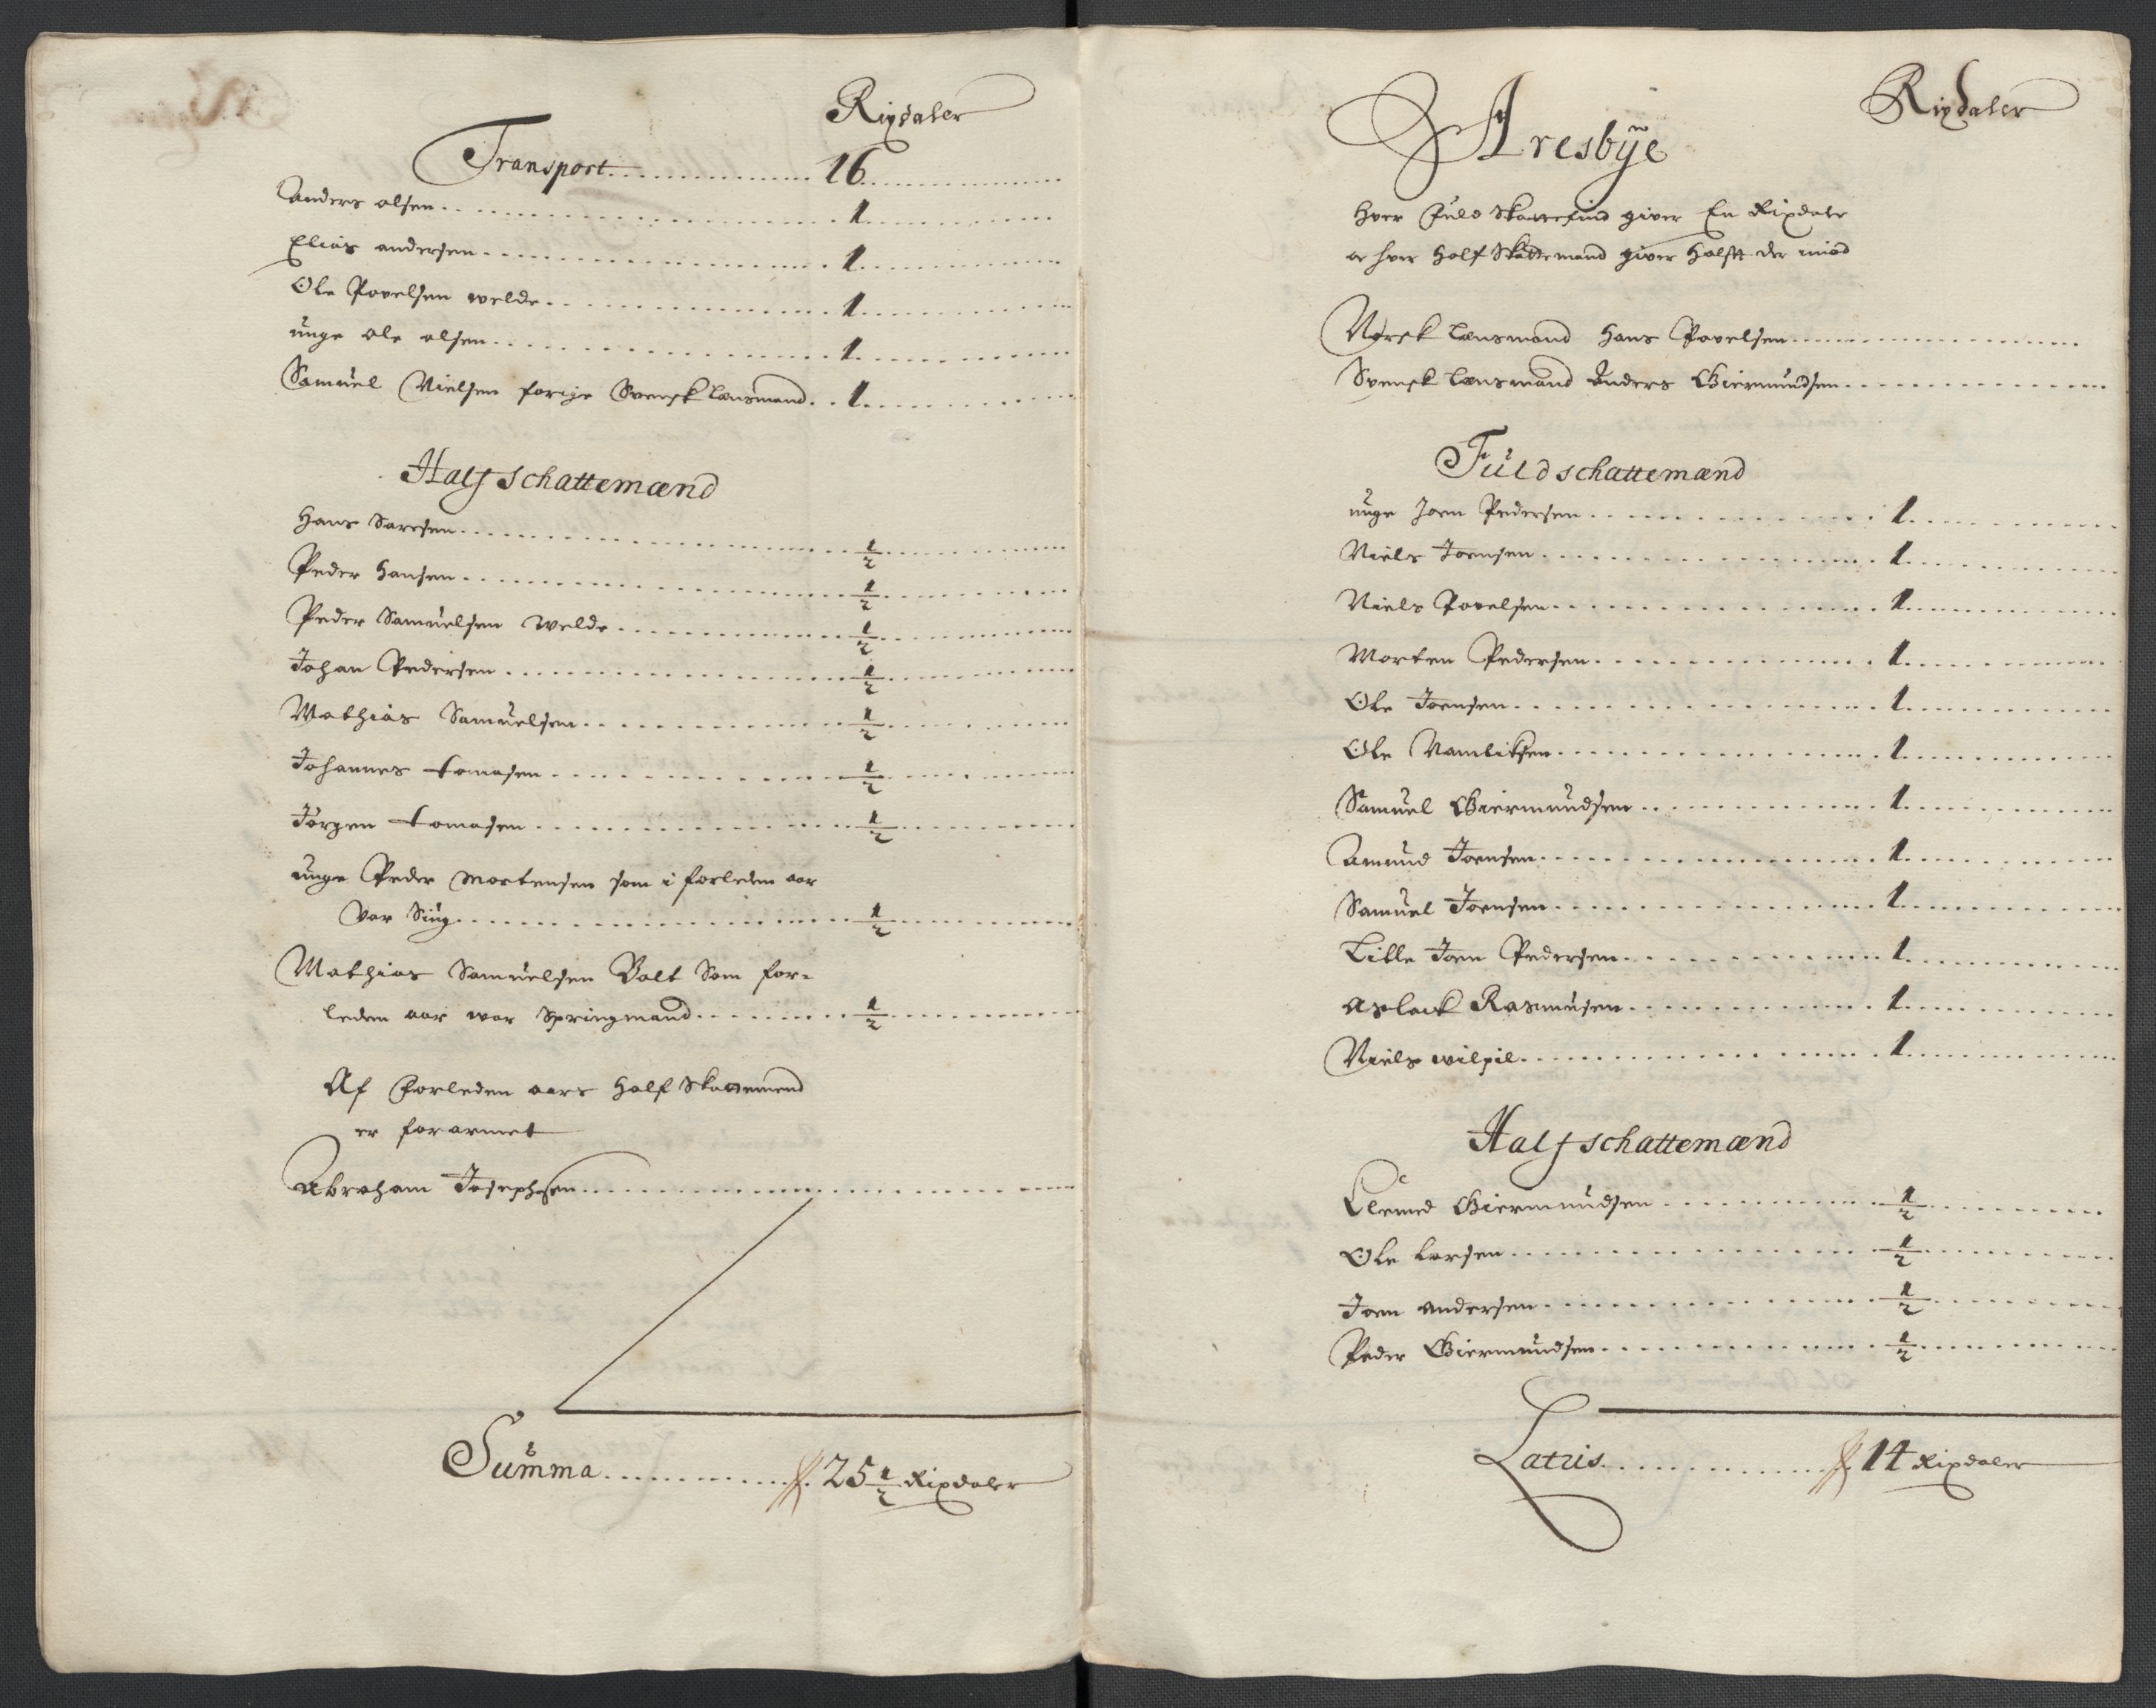 Rixdaler
Transport 16
Anders olsen 1
Elias andersen 1
Ole Povelsen welde 1
unge ole olsen 1
Samuel Nielsen forige Svensk Lensmand 1
Half schattemænd
Hans Saresen 1/2
Peder Hansen 1/2
Peder Samuelsen welde 1/2
Johan Pedersen 1/2
Mathias Samuelsen 1/2
Johannes tomasen 1/2
Jørgen tomasen 1/2
unge Peder Mortensen som i forleden aar
var Siug 1/2
Mathias Samuelsen Balt Som for-
leden aar war Springmand 1/2
Af Forleden aars Half Skattemend
er forarmet
Abraham Josephsen
Summa 25 1/2 Rixdaler
Rixdaler
Aresbÿe
Hver Fuld Skattefind giver En Rixdaler
oc hver Half Skattemand giver Halftt der imod
Norsk Lensmand Hans Povelsen
Svensk Lensmand Anders Giermundsen
Fuldschattemænd
unge Joen Pedersen 1
Niels Joensen 1
Niels Povelsen 1
Morten Pedersen 1
Ole Joensen 1
Ole 1
Samuel Giermundsen 1
Amund Joensen 1
Samuel Joensen 1
Lille Joen Pedersen 1
Aslack Rasmusen 1
Niels 1
Half schattemænd
Clemed Giermundsen 1/2
Ole Larsen 1/2
Joen andersen 1/2
Peder Giermundsen 1/2
Latus 14 Rixdaler